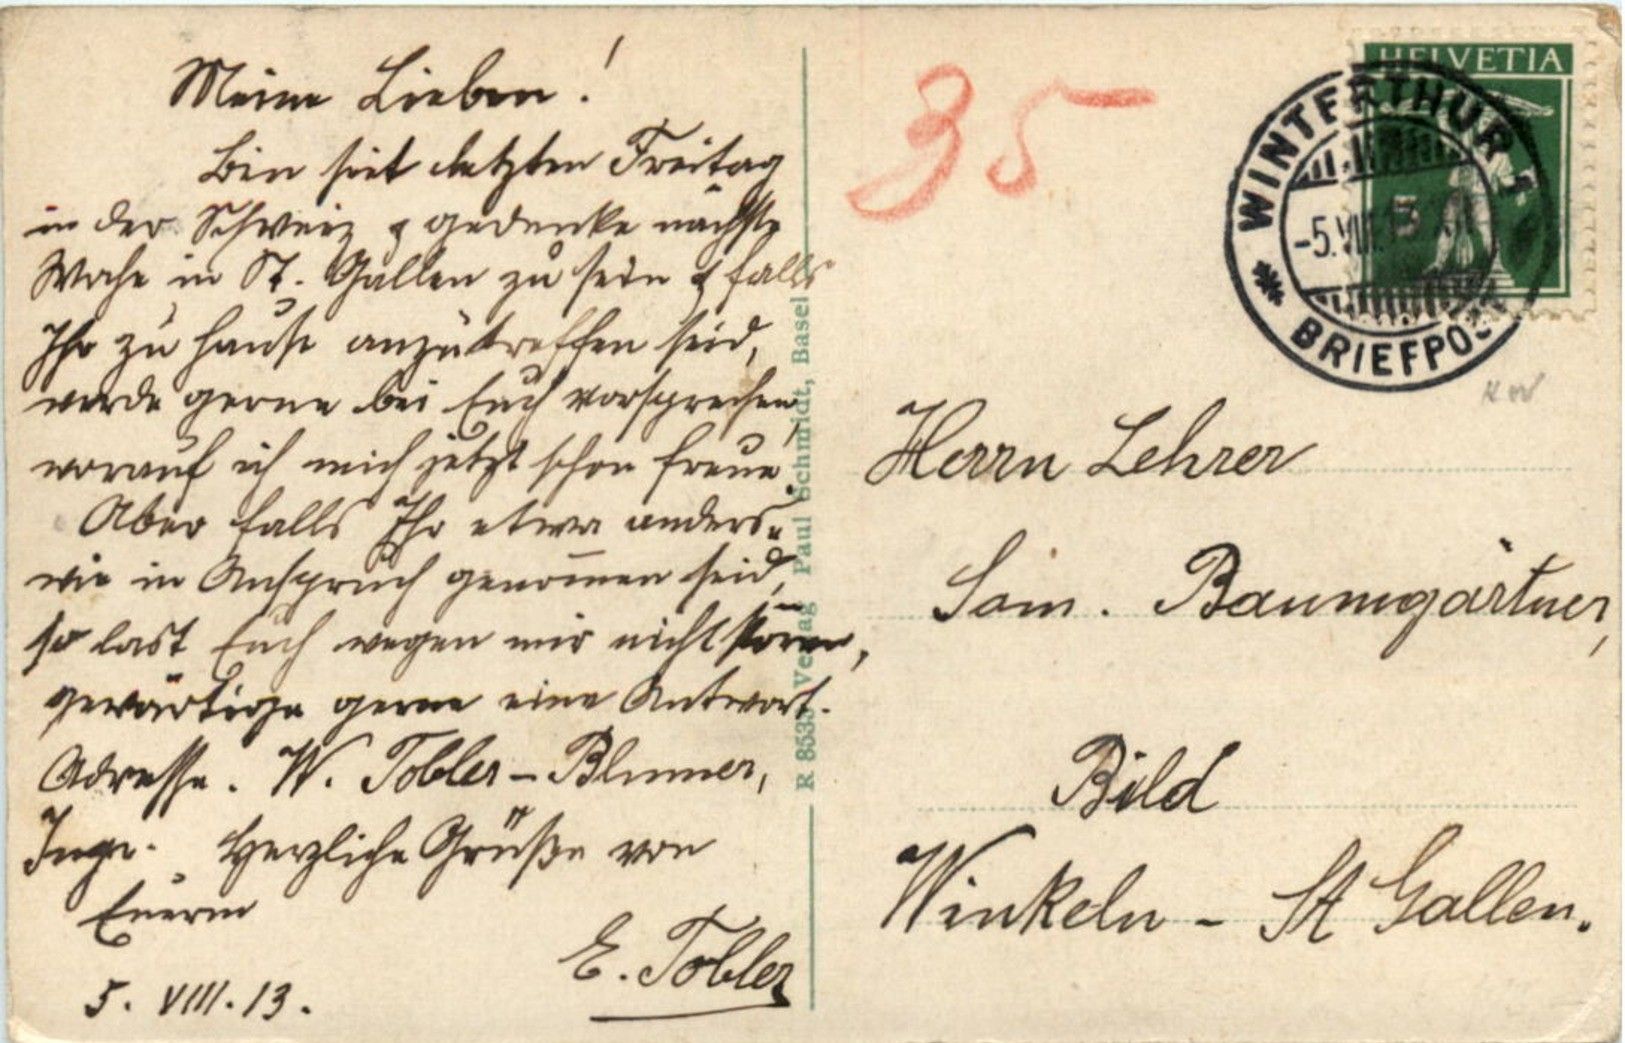 Meine Lieben!
Bin seit letzten Freitag
in der Schweiz & gedenke nächste
Woche in St. Gallen zu sein & falls
Ihr zu Hause anzutreffen seid,
werde gerne bei Euch vorsprechen,
worauf ich mich jetzt schon freue.
Aber falls Ihr etwa anders-
wie in Anspruch genom̅en seid,
so last Euch wegen mir nicht stören,
gewärtige gerne eine Antwort.
Adresse. W. Tobler-Blumer,
Ingr. Herzliche Grüße von
Euerm
E. Tobler
5. VIII. 13.
R 8533 Verlag Paul Schmidt, Basel
35
HELVETIA
5
WINTERTHUR 1
-5.VIII.13
BRIEFPOST
Herrn Lehrer
Sam. Baumgärtner,
Bild
Winkeln - St Gallen.